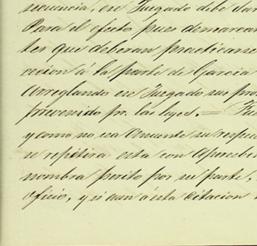 secuencia, ese Juzgado debe dar
Para el efecto pues demarcan
tes que deberan practicarse
ccion á la parte de Garcia
arreglando ese Juzgado su pro
prevenido por las leyes. =
y como no sea
se repitira esta con apercibi
nombra perito por su parte,
oficio, y si aun á esta citacion